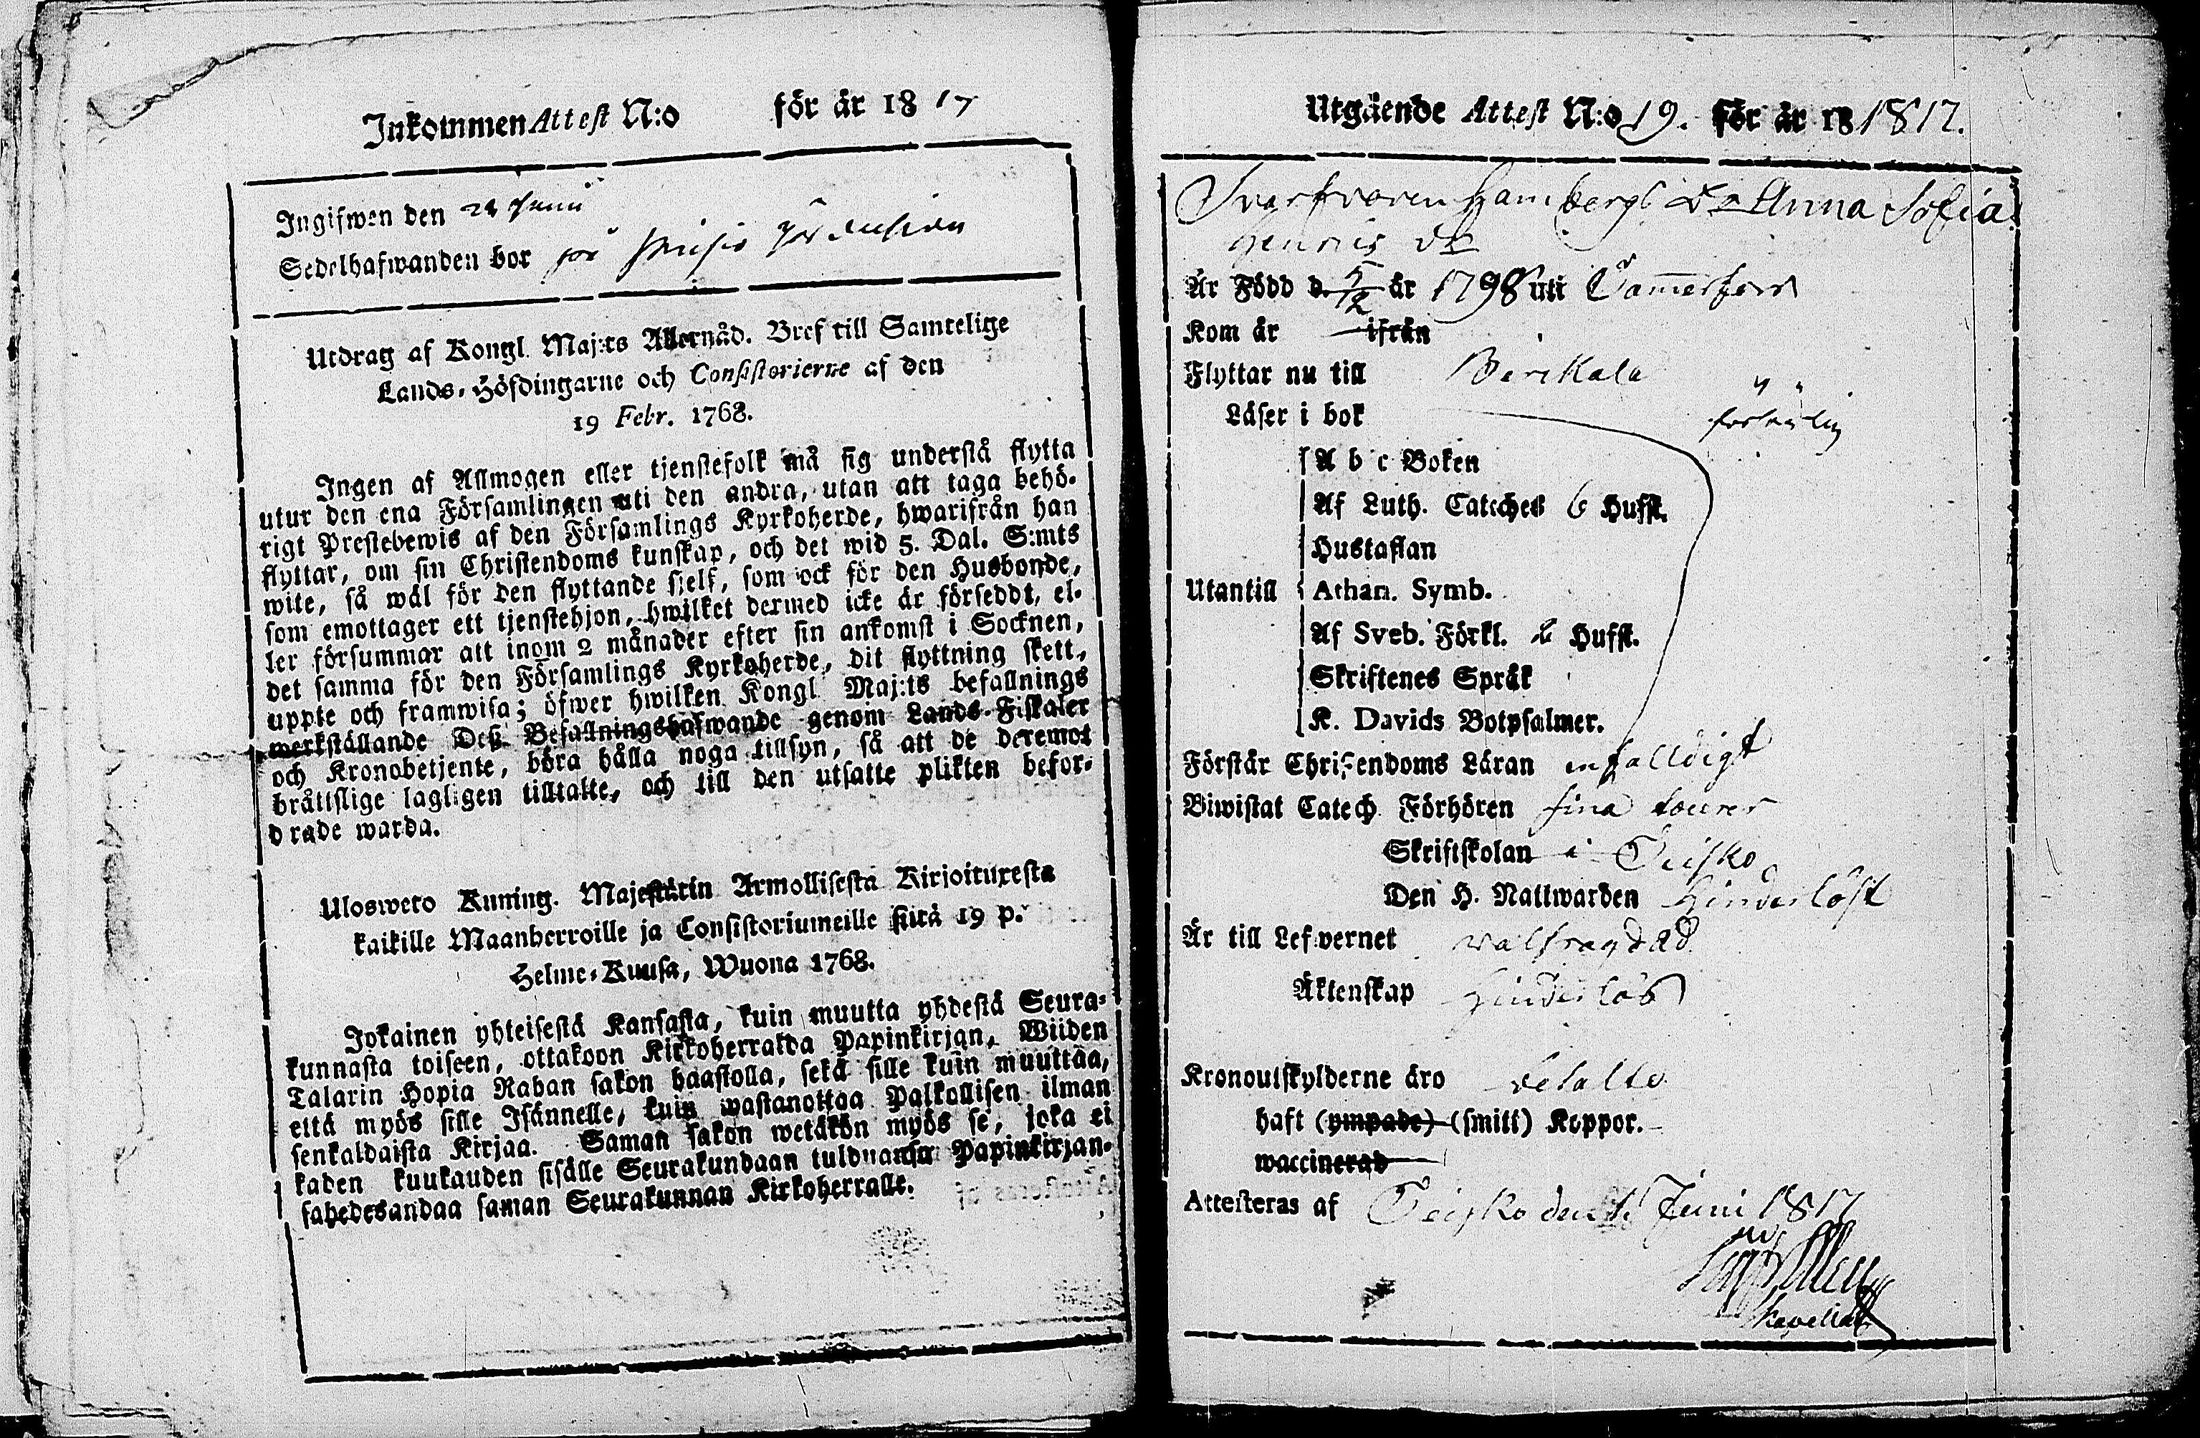 Inkommen Attest N:o för år 18 17
Ingifwen den 24 Junii
Sedelhafwanden bor på
Utdrag af Kongl. Maj:ts Allernåd. Bref till Samtelige
Lands-Höfdingarne och Consistorierne af den
19 Febr. 1768.
Ingen af Allmogen eller tjenstefolk må sig understå flytta
utur den ena Församlingen uti den andra, utan att taga behö-
rigt Prestebewis af den Församlings Kyrkoherde, hwarifrån han
flyttar, om sin Christendoms kunskap, och det wid 5. Dal. S:mts
wite, så wäl för den flyttande sjelf, som ock för den Husbonde,
som emottager ett tjenstehjon, hwilket dermed icke är förseddt, el-
ler försummar att inom 2 månader efter sin ankomst i Socknen,
det samma för den Församlings Kyrkoherde, dit flyttning skett,
uppte och framwisa; öfwer hwilken Kongl. Maj:ts befallnings
werkställande Deß Befallningshafwande genom Lands-Fiskaler
och Kronobetjente, böra hålla noga tillsyn, så att de deremot
bråttslige lagligen tilltalte, och till den utsatte plikten befor-
drade warda.
Uloswero Kuning. Majestätin Armollisesta Kirjoituxesta
kaikille Maanherroille ja Consistoriumeille siitä 19 p.
Helme-Kuusa, Wuona 1768.
Jokainen yhteisestä Kansasta, kuin muutta yhdestä Seura-
kunnasta toiseen, ottakoon Kirkoherralda Papinkirjan, Wiiden
Talarin Hopia Rahan sakon haastolla, sekä sille kuin muuttaa,
että myös sille Isännelle, kuin wastanottaa Palkollisen ilman
senkaldaista Kirjaa. Saman sakon wetäkön myös se, joka ei
kaden kuukauden sisälle Seurakundaan tulduansa Papinkirjan-
sahedesandaa saman Seurakunnan Kirkoherralle.
Utgående Attest N:o 19. för år 18 1817.
Svarfvaren Hambergs Dr Anna Sofia
Henrics dr
Är Född d. 5/12 år 1798 uti Tammerfors
Kom år ifrån
Flyttar nu till Birkala
Läser i bok försvarlig
A b c Boken
Af Luth. Cateches 6 Hufst.
Hustaflan
Utantill Athan. Symb.
Af Sveb. Förkl. Hufst.
Skriftenes Språk
K. Davids Botpsalmer.
Förstår Christendoms Läran enfalldigt
Biwistat Catech. Förhören sina tourer
Skriftskolan i Teisko
Den H. Nattwarden Hinderlöst
Är till Lefwernet wälfragdad
Äktenskap Hinderlös
Kronoutskylderne äro betalte
haft (ympade) (smitt) Koppor.
waccinerad
Attesteras af Teisko den 1. Juni 1817
Kapellan